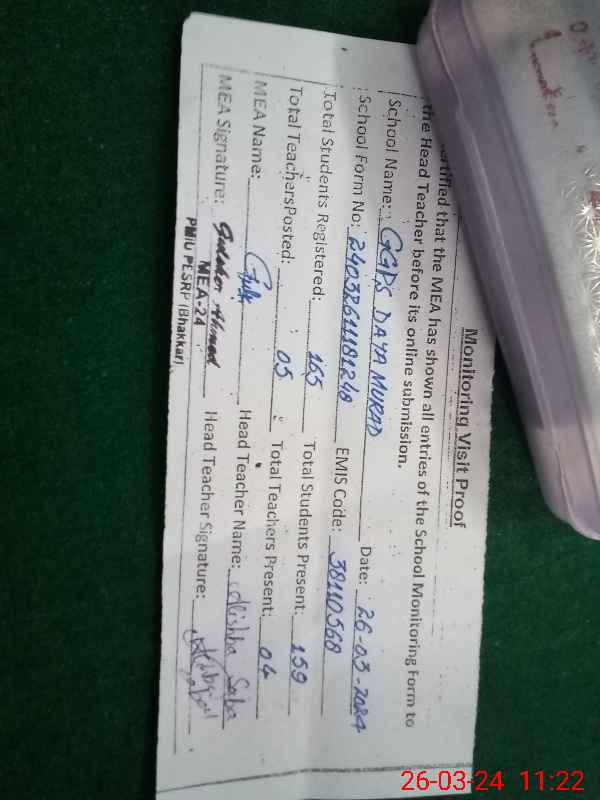 Monitoring Visit Proof
ertified that the MEA has shown all entries of the School Monitoring Form to
the Head Teacher before its online submission.
School Name: GGPS DAYA MURAD Date: 26-03-2024
School Form No: 24032611181248 EMIS Code: 38110568
Total Students Registered: 165 Total Students Present: 159
Total Teachers Posted: 05 Total Teachers Present: 04
MEA Name: Head Teacher Name: Alishba Saba
MEA Signature: Head Teacher Signature:
MEA-24
PMIU PESRP (Bhakkar)
26-03-24 11:22